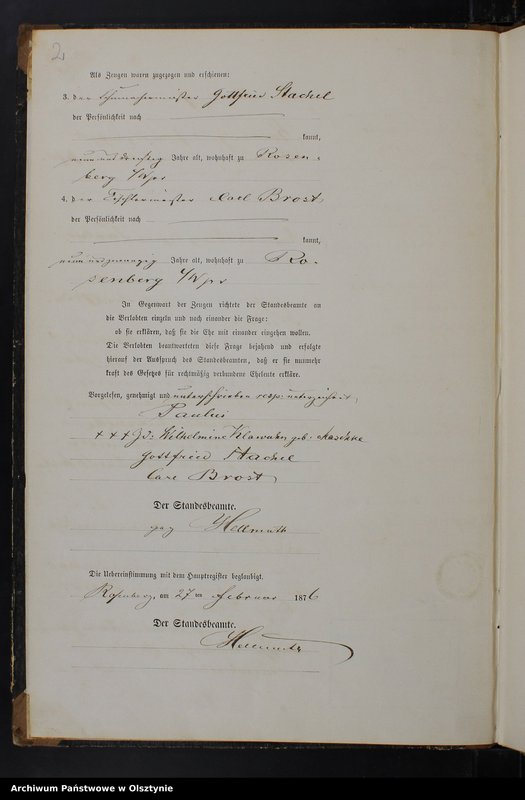 2
Als Zeugen waren zugezogen und erschienen:
3. der Schumachermeister Gottfried Stachel
der Persönlichkeit nach
kannt,
neun und dreißig Jahre alt, wohnhaft zu Rosen-
berg W/pr
4. der Tischlermeister Carl Brost
der Persönlichkeit nach
kannt,
neun und zwanzig Jahre alt, wohnhaft zu Ro-
senberg W/pr
In Gegenwart der Zeugen richtete der Standesbeamte an
die Verlobten einzeln und nach einander die Frage:
ob sie erklären, daß sie die Ehe mit einander eingehen wollen.
Die Verlobten beantworteten diese Frage bejahend und erfolgte
hierauf der Ausspruch des Standesbeamten, daß er sie nunmehr
kraft des Gesetzes für rechtmäßig verbundene Eheleute erkläre.
Vorgelesen, genehmigt und unterschrieben resp: unterzeichnet
+ + + Wilhelmine Klawuhn geb: Maschke
Gottfried Stachel
Carl Brost
Der Standesbeamte.
gez Hellmuth
Die Uebereinstimmung mit dem Hauptregister beglaubigt.
Rosenberg, am 27ten Februar 1876
Der Standesbeamte.
Hellmuth
Archiwum Państwowe w Olsztynie